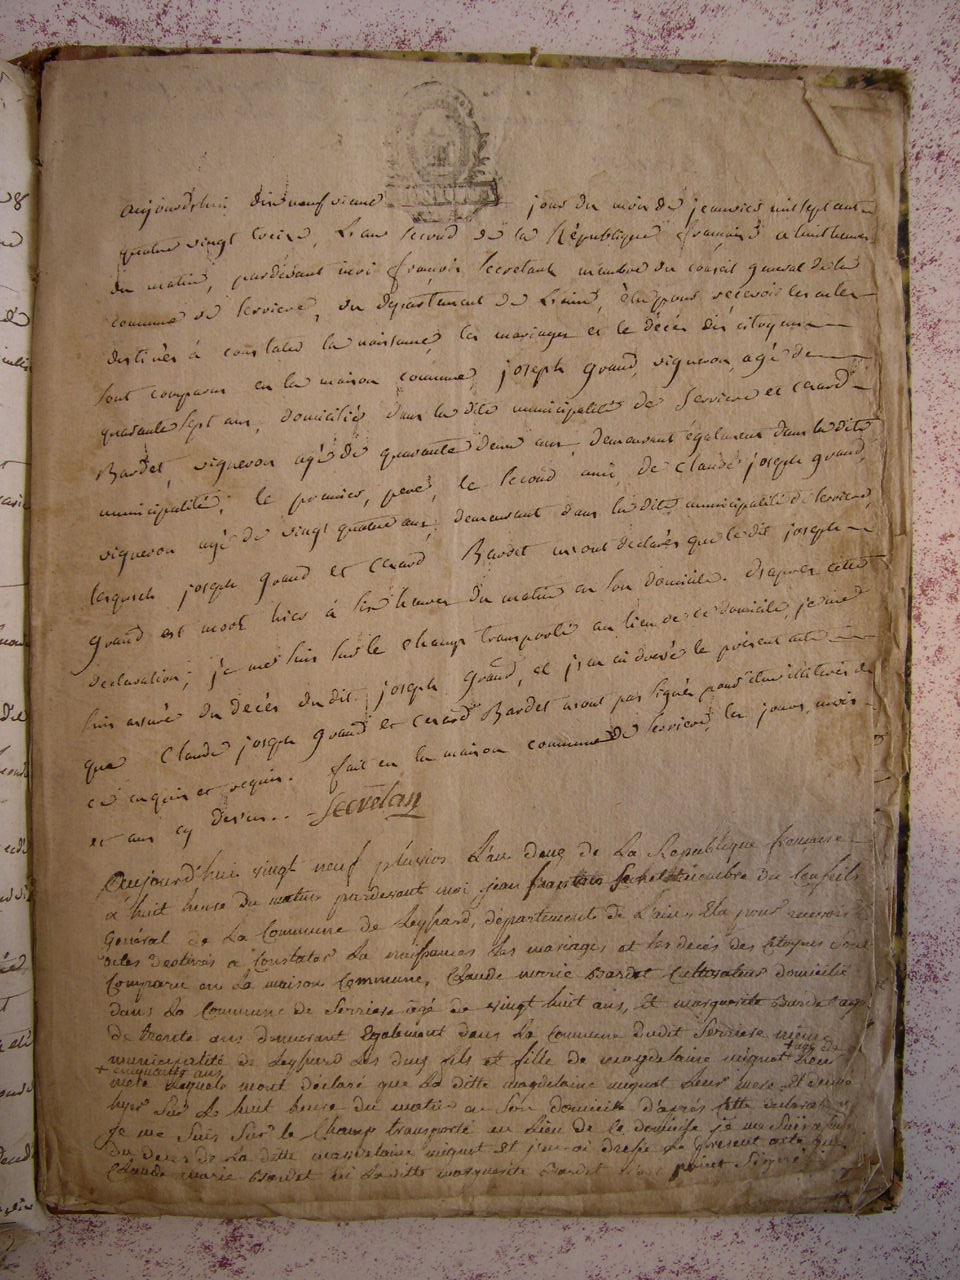 aujourd'huy dix neuf vieme jour du mois de jeanvier mil sept cent
quatre vingt treize, L'an second de la République française a huit heures
du matin, pardevant moi françois Secretant membre du conseil general de la
commune de Serriere, du département de L'ain, élu pour recevoir les actes
destinés à constater la naissance, les mariages et le décès des citoyens
sont comparus en la maison commune, joseph grand, vigneron, agé de
quarante sept ans, domicilié dans la dite municipalité de Serriere et
Bardet, vigneron agé de quarante deux ans, demeurant également dans la dite
municipalité; le premier, pere, le second ami, de Claude joseph grand,
vigneron agé de vingt quatre ans, demeurant dans la dite municipalité de Serriere,
lesquels joseph grand et Bardet m'ont declarés que le dit joseph
grand est mort hier à six heures du matin en son domicile. d'apres cette
declaration, je me suis sur le champ transporté au lieu de ce domicile, je me
suis assuré du decès du dit joseph grand, et j'en ai dressé le présent acte
que Claude joseph grand et Bardet n'ont pas signés pour être illiterés de
ce enquis et requis. fait en la maison commune de Serriere, les jours, mois
et an cy dessus. Secretan
Aujourd'hui vingt neuf pluvios L'an deux de La Republique francaise
à huit heure du matin pardevant moi jean membre du Conseils
Général de La Commune de Leyssard, département de L'ain, Elu pour recevoir
actes destinés a Constater La naissances Les mariages et les decès des Citoyens sont
Comparu en La maison Commune, Claude marie Bardet Cultivateur domicilié
dans La Commune de Serriere agé de vingt huit ans, Et marguerite Bardet agé
de trente ans demeurant Egalement dans La Commune dudit Serriere même
municipalité de Leyssard Les deux fils et fille de magdelaine mignot + agé de
+ cinquante ans
Lequels mont déclaré que La ditte magdelaine mignot Leur mere Et
hyer sur Le huit heure du matin en son domicile d'après cette declaration
je me suis sur le Champ transporté au Lieu de ce domicile je me suis
du deces de La ditte magdelaine mignot Et j'en ai dressé Le present acte que
Claude marie Bardet ni La ditte marguerite Bardet n'ont point Signé